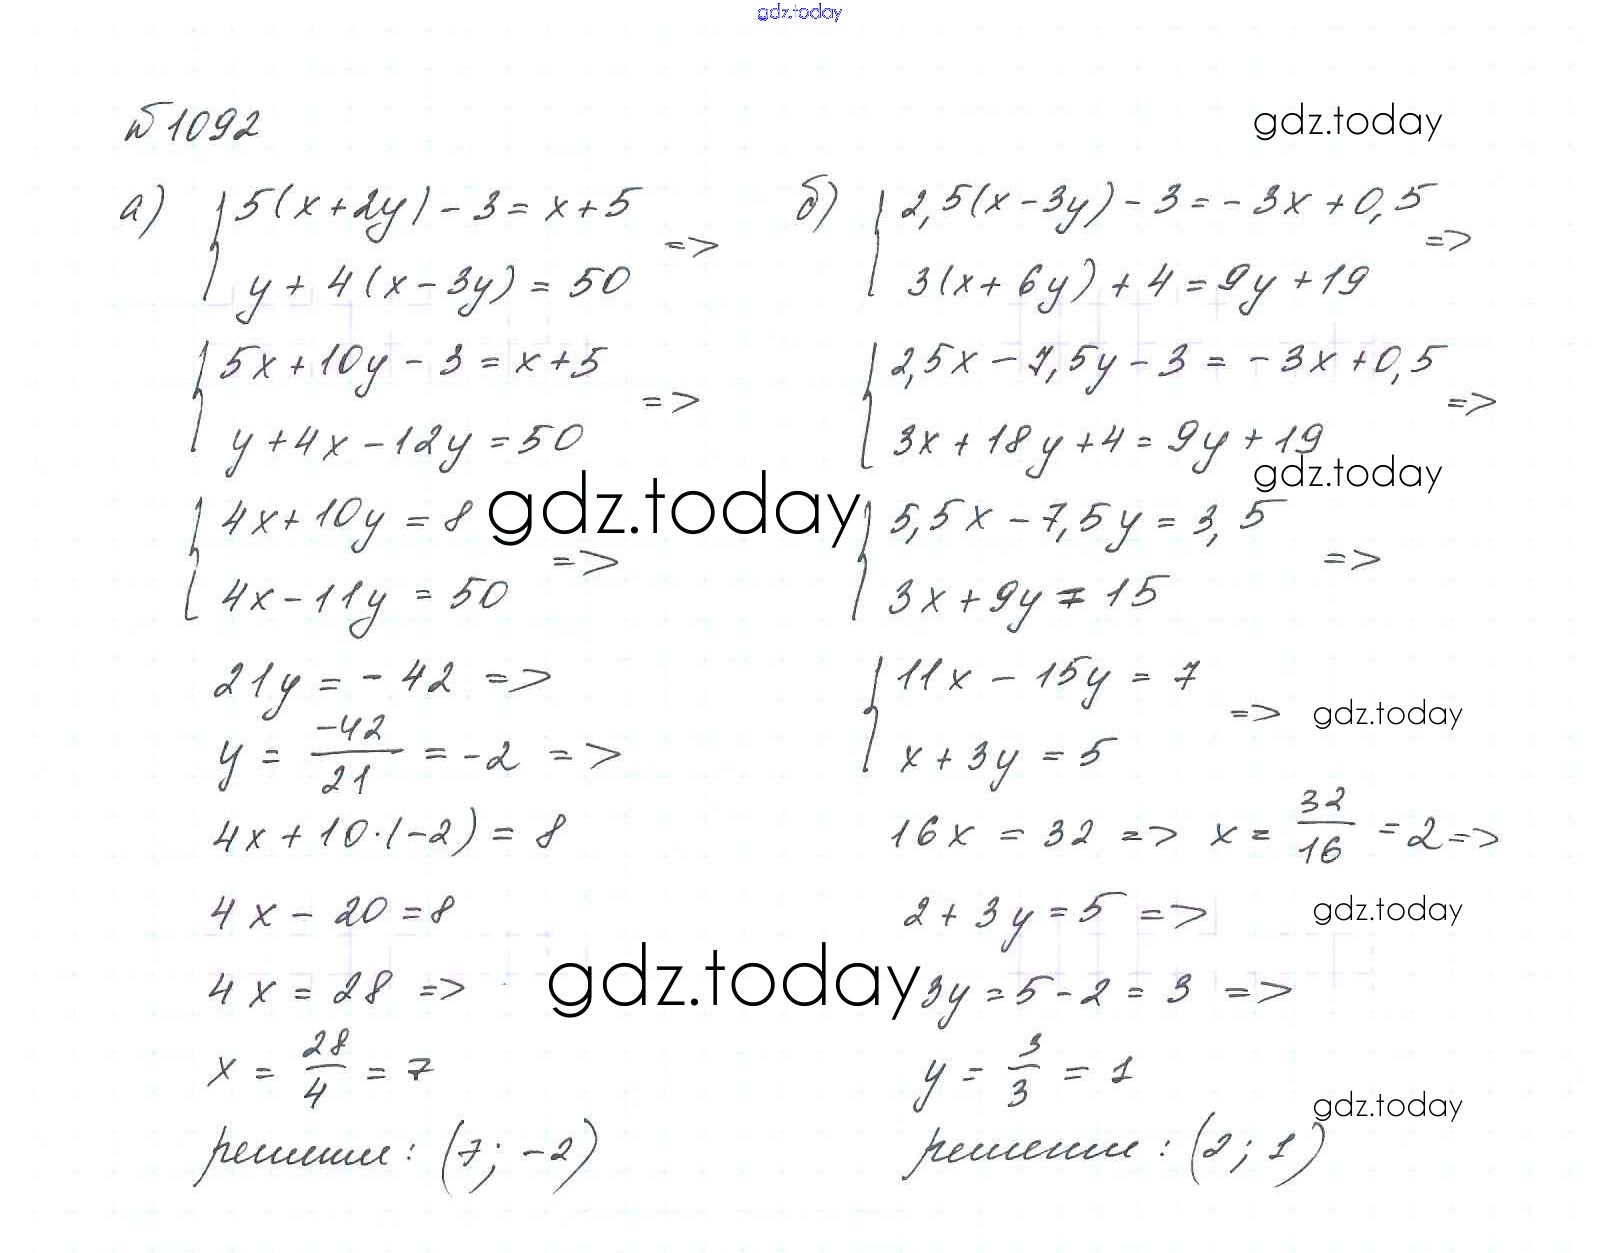 gdz.today
№1092
gdz.today
а) { 5(x+2y)-3=x+5
y+4(x-3y)=50 =>
{ 5x+10y-3=x+5
y+4x-12y=50 =>
{ 4x+10y=8
4x-11y=50 =>
gdz.today
21y=-42 =>
y = -42/21 = -2 =>
4x+10·(-2)=8
4x-20=8
4x=28 =>
gdz.today
x = 28/4 = 7
решение: (7; -2)
б) { 2,5(x-3y)-3=-3x+0,5
3(x+6y)+4=9y+19 =>
{ 2,5x-7,5y-3=-3x+0,5
3x+18y+4=9y+19 =>
gdz.today
{ 5,5x-7,5y=3,5
3x+9y=15 =>
{ 11x-15y=7
x+3y=5 =>
gdz.today
16x=32 => x = 32/16 = 2 =>
2+3y=5 =>
gdz.today
3y=5-2=3 =>
y = 3/3 = 1
gdz.today
решение: (2; 1)